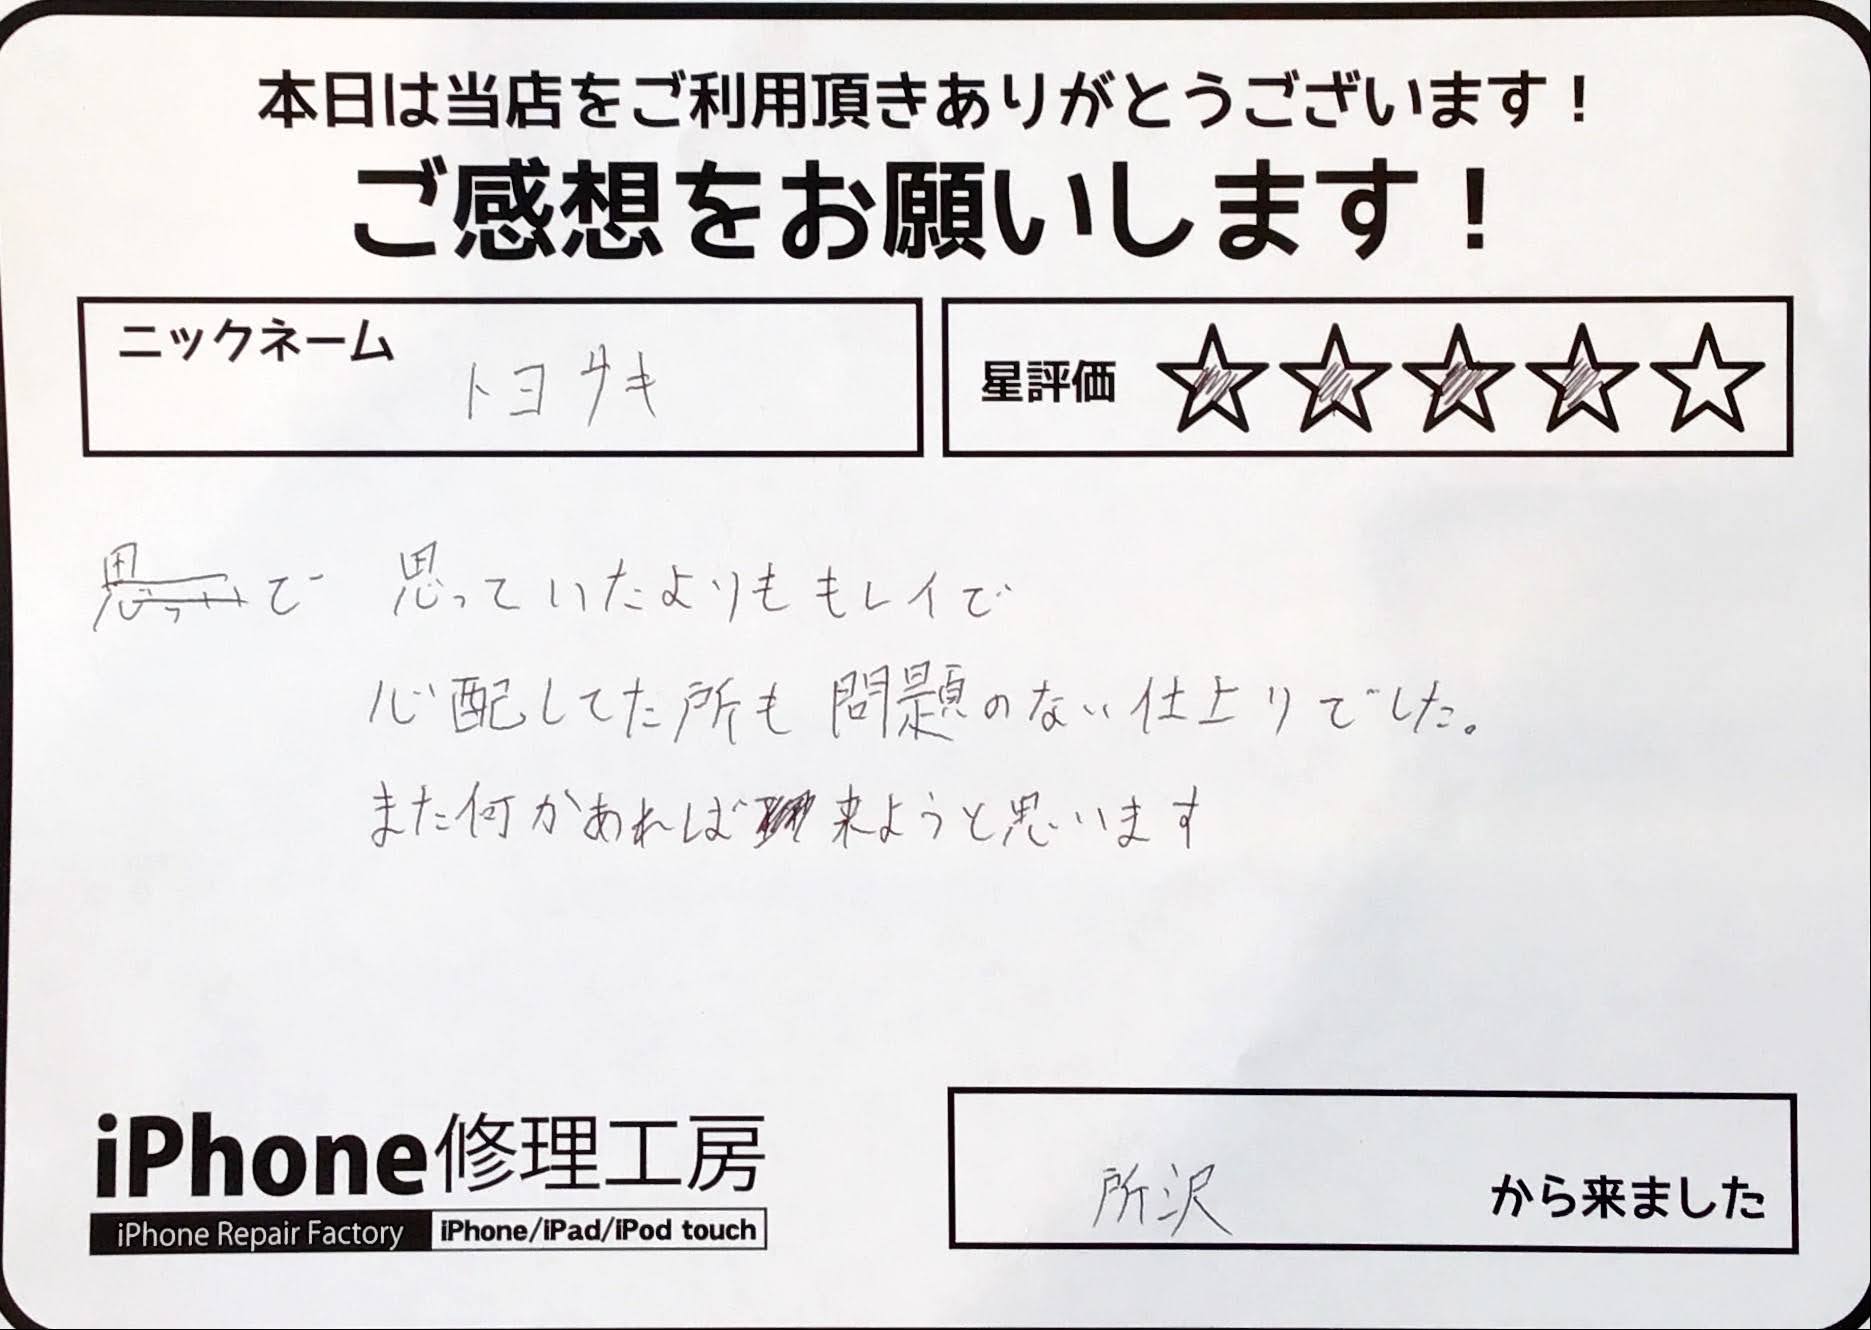 本日は当店をご利用頂きありがとうございます!
ご感想をお願いします!
ニックネーム トヨサキ
星評価 ☆☆☆☆☆
思ってで 思っていたよりもキレイで
心配してた所も問題のない仕上りでした。
また何かあれば来ようと思います
iPhone修理工房
iPhone Repair Factory iPhone/iPad/iPod touch
所沢 から来ました